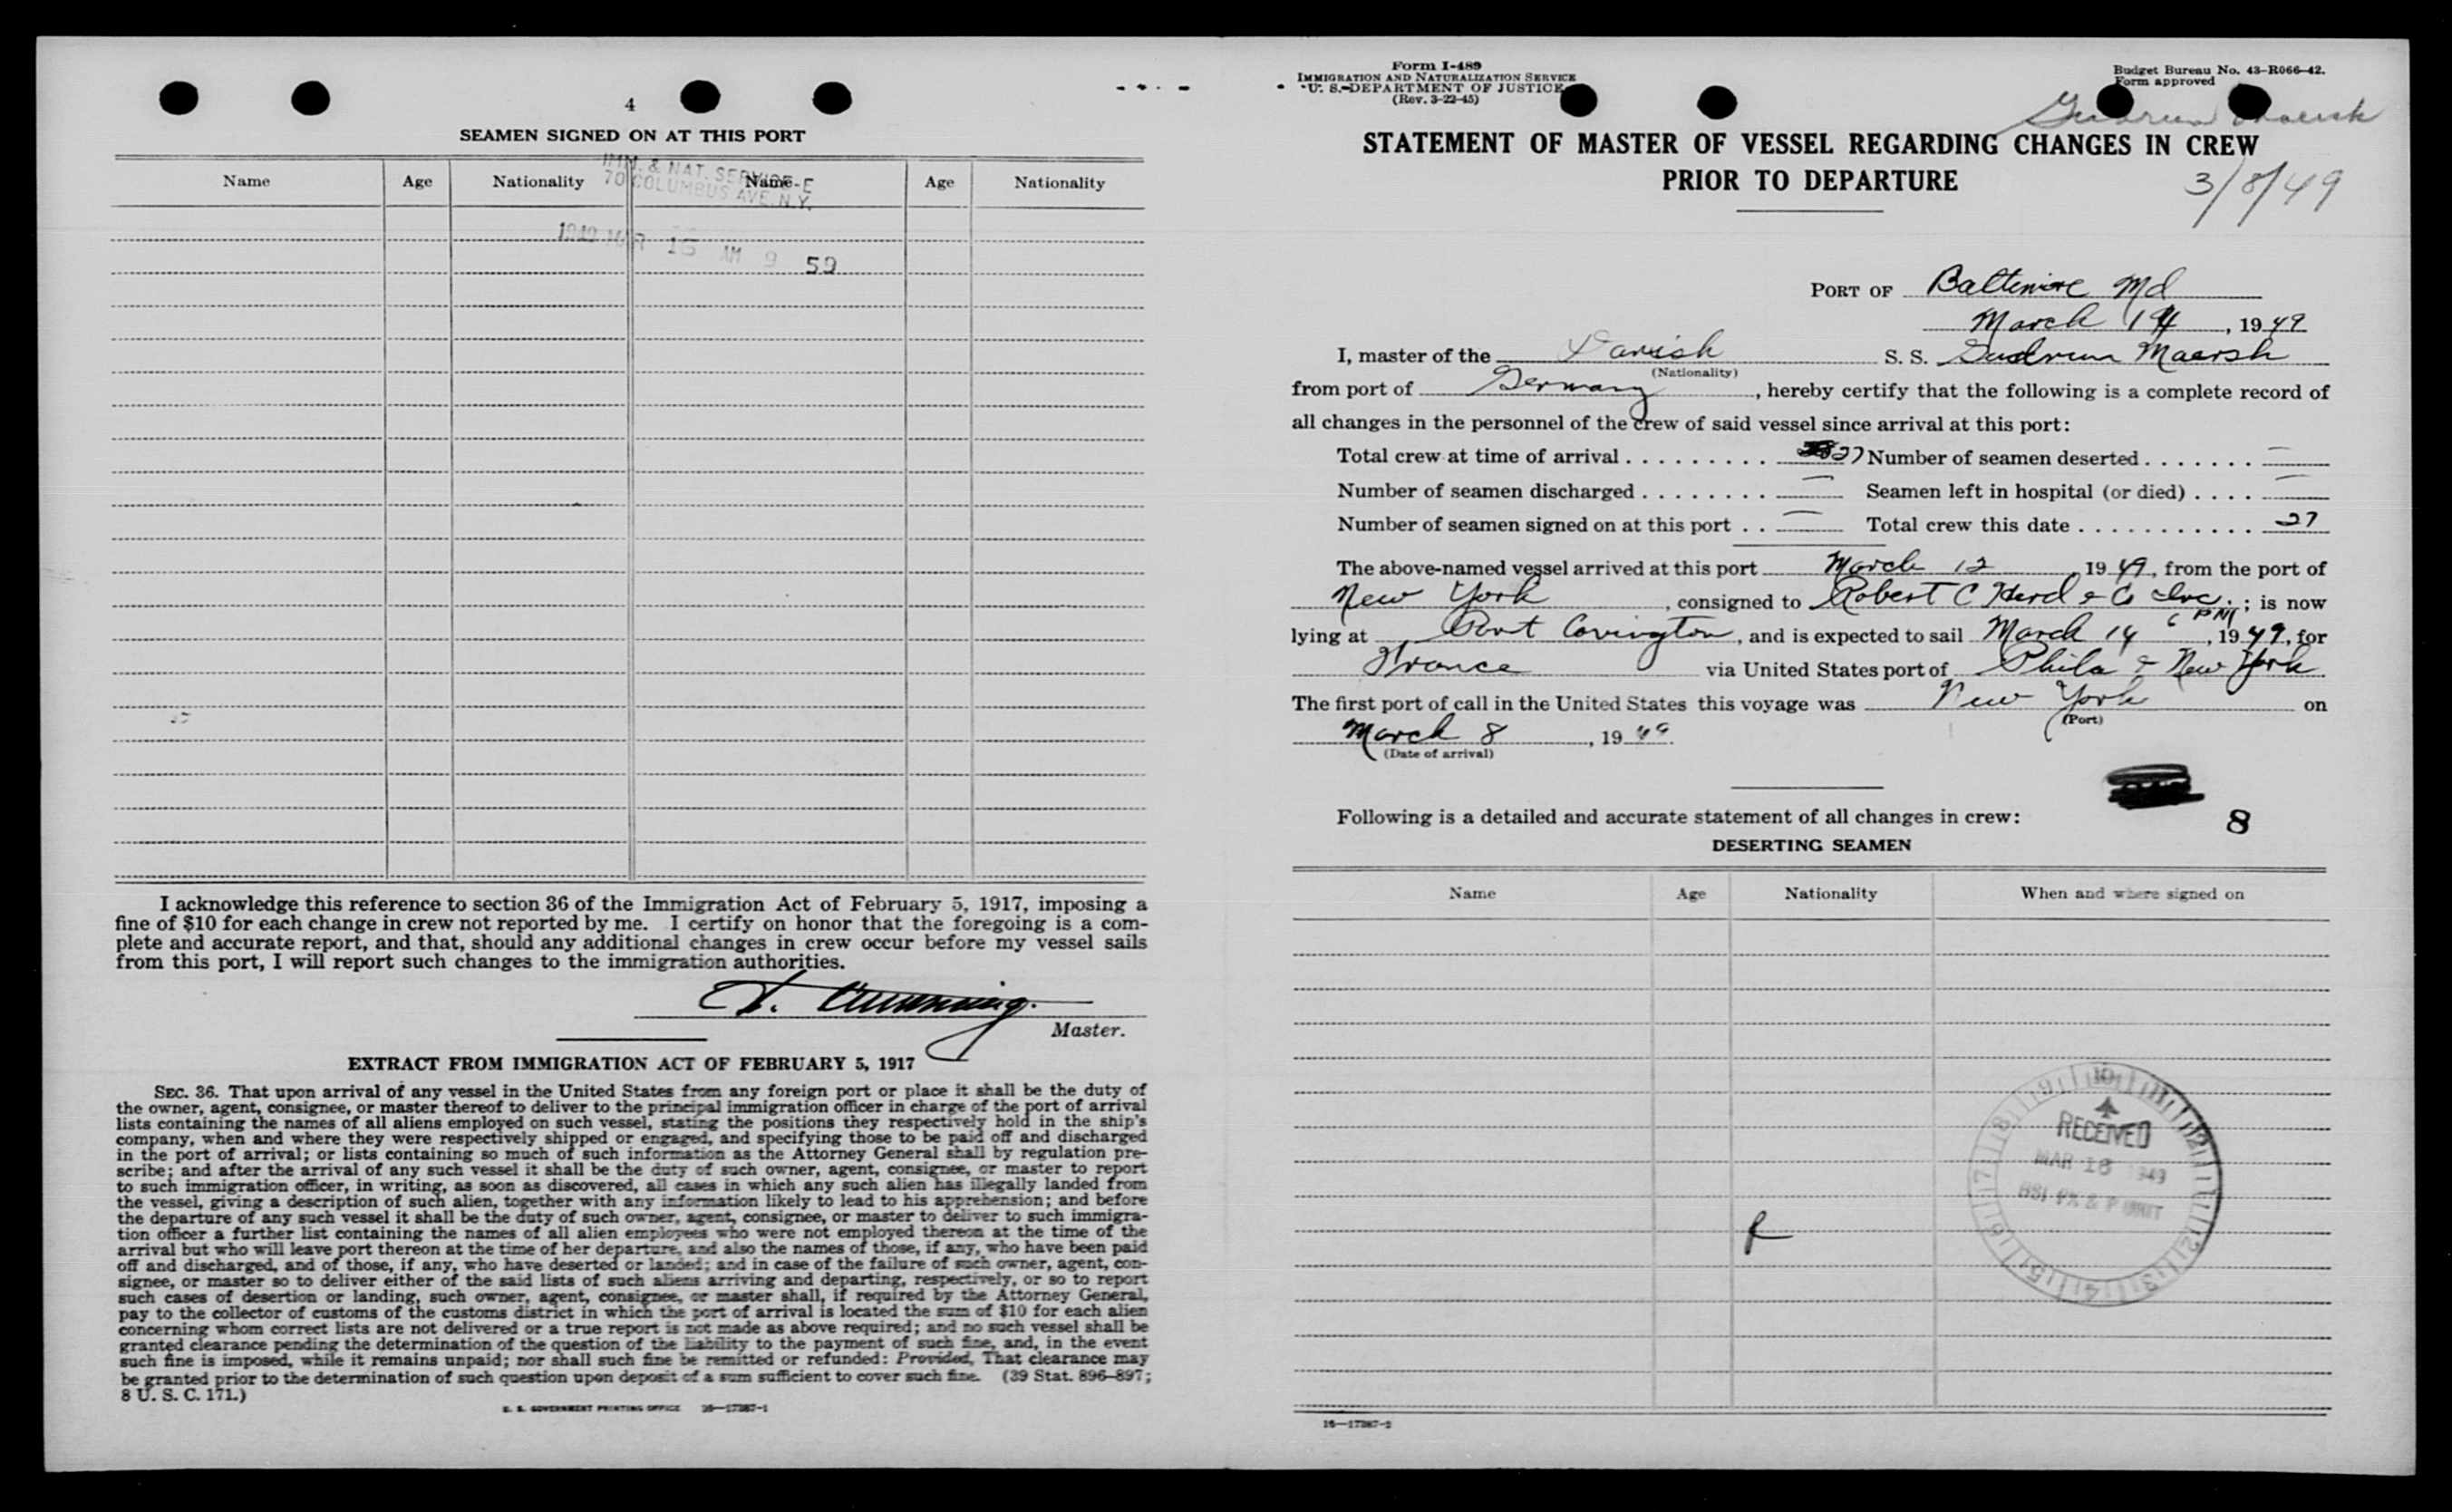 4
SEAMEN SIGNED ON AT THIS PORT
IMM. & NAT. SERVICE
70 COLUMBUS AVE. N.Y.
Name Age Nationality Name Age Nationality
1949 MAR 16 AM 9 59
I acknowledge this reference to section 36 of the Immigration Act of February 5, 1917, imposing a
fine of $10 for each change in crew not reported by me. I certify on honor that the foregoing is a com-
plete and accurate report, and that, should any additional changes in crew occur before my vessel sails
from this port, I will report such changes to the immigration authorities.
Master.
EXTRACT FROM IMMIGRATION ACT OF FEBRUARY 5, 1917
SEC. 36. That upon arrival of any vessel in the United States from any foreign port or place it shall be the duty of
the owner, agent, consignee, or master thereof to deliver to the principal immigration officer in charge of the port of arrival
lists containing the names of all aliens employed on such vessel, stating the positions they respectively hold in the ship's
company, when and where they were respectively shipped or engaged, and specifying those to be paid off and discharged
in the port of arrival; or lists containing so much of such information as the Attorney General shall by regulation pre-
scribe; and after the arrival of any such vessel it shall be the duty of such owner, agent, consignee, or master to report
to such immigration officer, in writing, as soon as discovered, all cases in which any such alien has illegally landed from
the vessel, giving a description of such alien, together with any information likely to lead to his apprehension; and before
the departure of any such vessel it shall be the duty of such owner, agent, consignee, or master to deliver to such immigra-
tion officer a further list containing the names of all alien employees who were not employed thereon at the time of the
arrival but who will leave port thereon at the time of her departure, and also the names of those, if any, who have been paid
off and discharged, and of those, if any, who have deserted or landed; and in case of the failure of such owner, agent, con-
signee, or master so to deliver either of the said lists of such aliens arriving and departing, respectively, or so to report
such cases of desertion or landing, such owner, agent, consignee, or master shall, if required by the Attorney General,
pay to the collector of customs of the customs district in which the port of arrival is located the sum of $10 for each alien
concerning whom correct lists are not delivered or a true report is not made as above required; and no such vessel shall be
granted clearance pending the determination of the question of the liability to the payment of such fine, and, in the event
such fine is imposed, while it remains unpaid; nor shall such fine be remitted or refunded: Provided, That clearance may
be granted prior to the determination of such question upon deposit of a sum sufficient to cover such fine. (39 Stat. 896-897;
8 U. S. C. 171.)
U. S. GOVERNMENT PRINTING OFFICE 16—17387-1
Form I-489
IMMIGRATION AND NATURALIZATION SERVICE
U. S. DEPARTMENT OF JUSTICE
(Rev. 3-22-45)
Budget Bureau No. 43-R066-42.
Form approved
Gudrun Maersk
STATEMENT OF MASTER OF VESSEL REGARDING CHANGES IN CREW
PRIOR TO DEPARTURE
3/8/49
PORT OF Baltimore Md
March 14, 1949
I, master of the Danish S. S. Gudrun Maersk
(Nationality)
from port of Germany, hereby certify that the following is a complete record of
all changes in the personnel of the crew of said vessel since arrival at this port:
Total crew at time of arrival . . . . . . . . . 27 Number of seamen deserted . . . . . . . —
Number of seamen discharged . . . . . . . . — Seamen left in hospital (or died) . . . . —
Number of seamen signed on at this port . . — Total crew this date . . . . . . . . . . . . 27
The above-named vessel arrived at this port March 12, 1949, from the port of
New York, consigned to Robert C Herd & Co Inc.; is now
lying at Port Covington, and is expected to sail March 14 6 PM, 1949, for
France via United States port of Phila & New York
The first port of call in the United States this voyage was New York on
(Port)
March 8, 1949.
(Date of arrival)
Following is a detailed and accurate statement of all changes in crew:
8
DESERTING SEAMEN
Name Age Nationality When and where signed on
RECEIVED
MAR 16 1949
16—17387-2